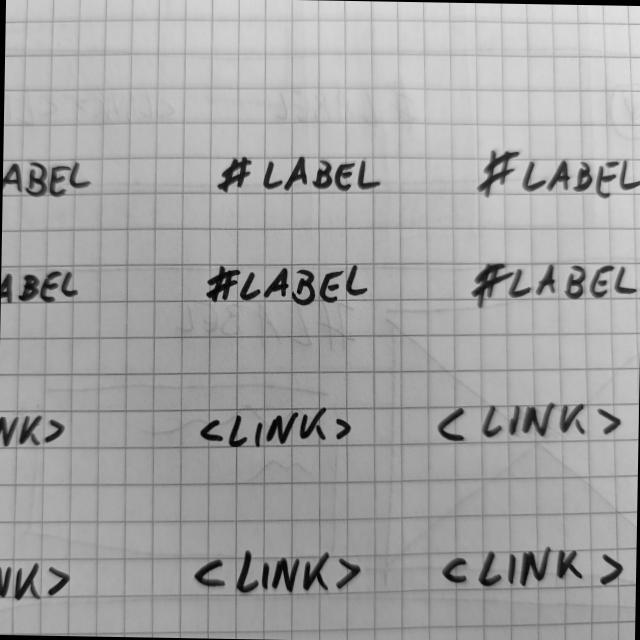 ABEL # LABEL #LABEL
ABEL #LABEL #LABEL
NK> <LINK> <LINK>
NK> <LINK> <LINK>